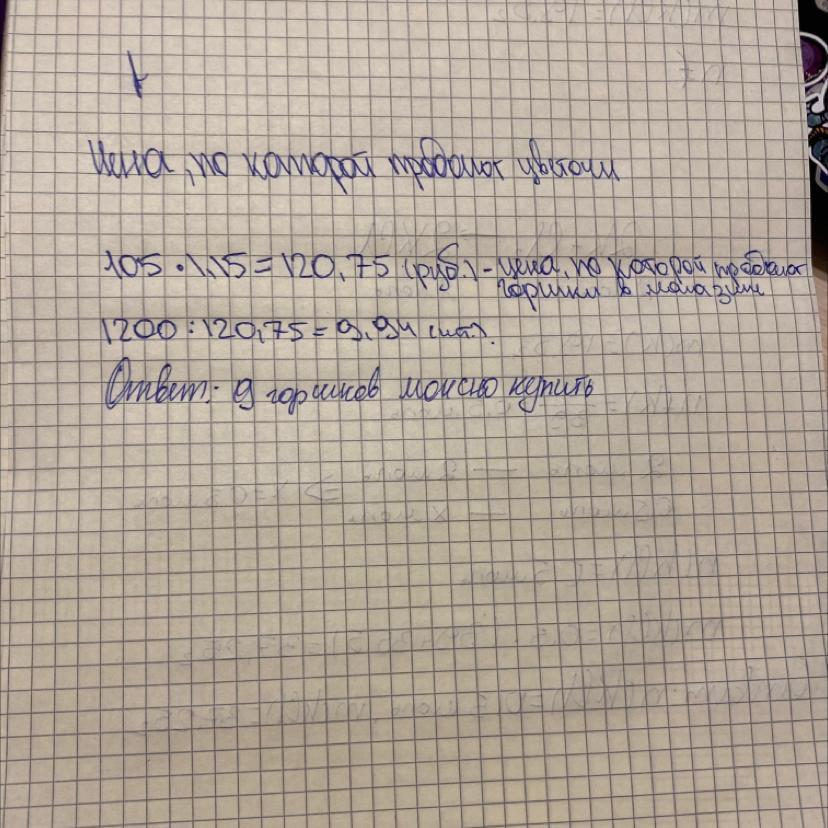 1
Цена, по которой продают цветочн
105 · 1,15 = 120,75 (руб.) - цена, по которой продают
горшки в магазин
1200 : 120,75 = 9,94 (шт.).
Ответ: 9 горшков можно купить